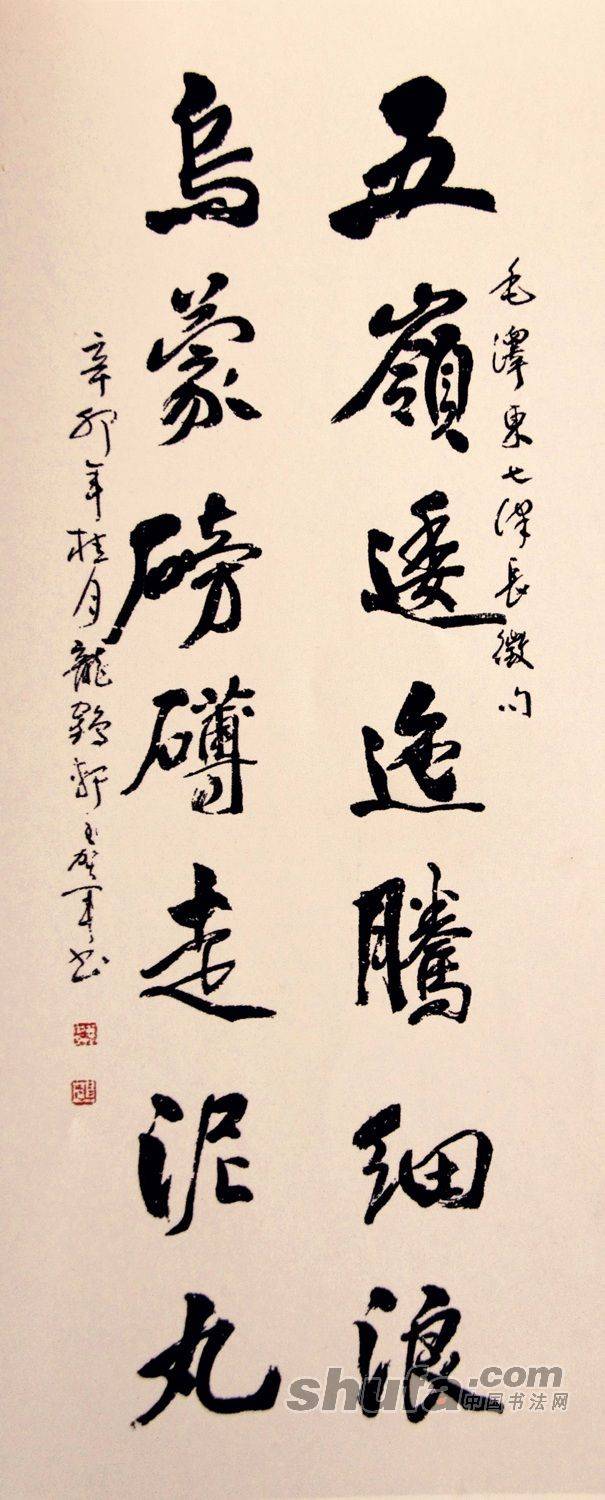 毛澤東七律長徵句
五嶺逶迤騰細浪
烏蒙磅礴走泥丸
辛卯年桂月龍鶴軒王賀軍書
shufa.com
中国书法网